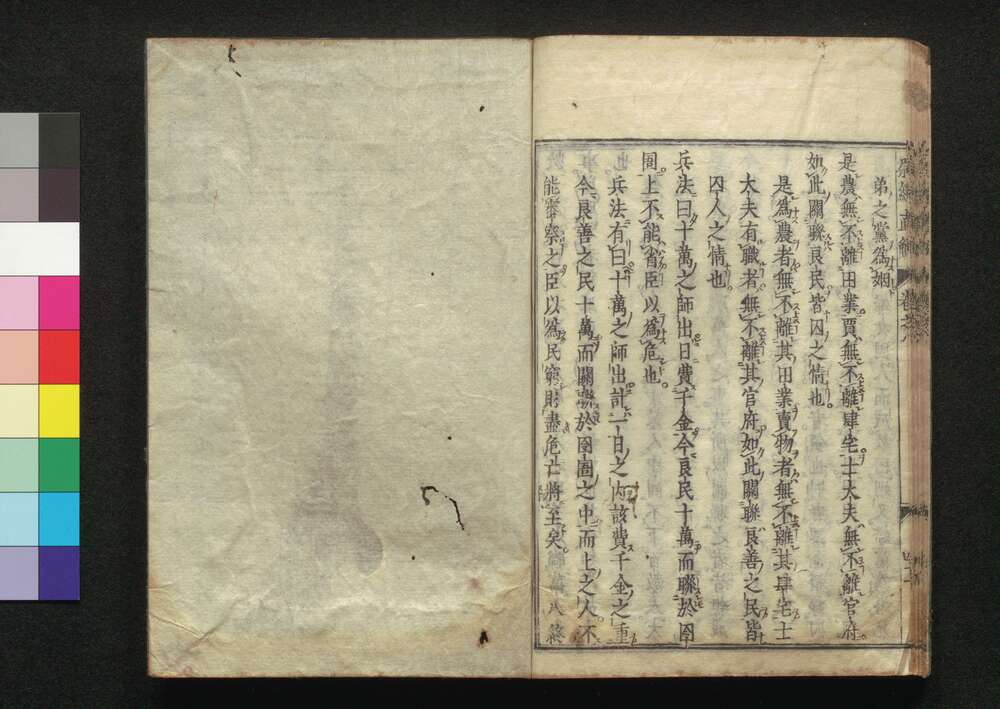 弟之黨爲姻
是農無不離田業賈無不離肆宅士大夫無不離官府
如此關聯良民皆囚之情也
是爲農者無不離其田業賣物者無不離其肆宅士
大夫有職者無不離其官府如此關聯良善之民皆
囚人之情也
兵法曰十萬之師出日費千金今良民十萬而聯於囹
圄上不能省臣以爲危也
兵法有曰十萬之師出計一日之内該費千金之重
今良善之民十萬而關聯於囹圄之中而上之人不
能察之臣以爲民窮財盡危亡將至矣